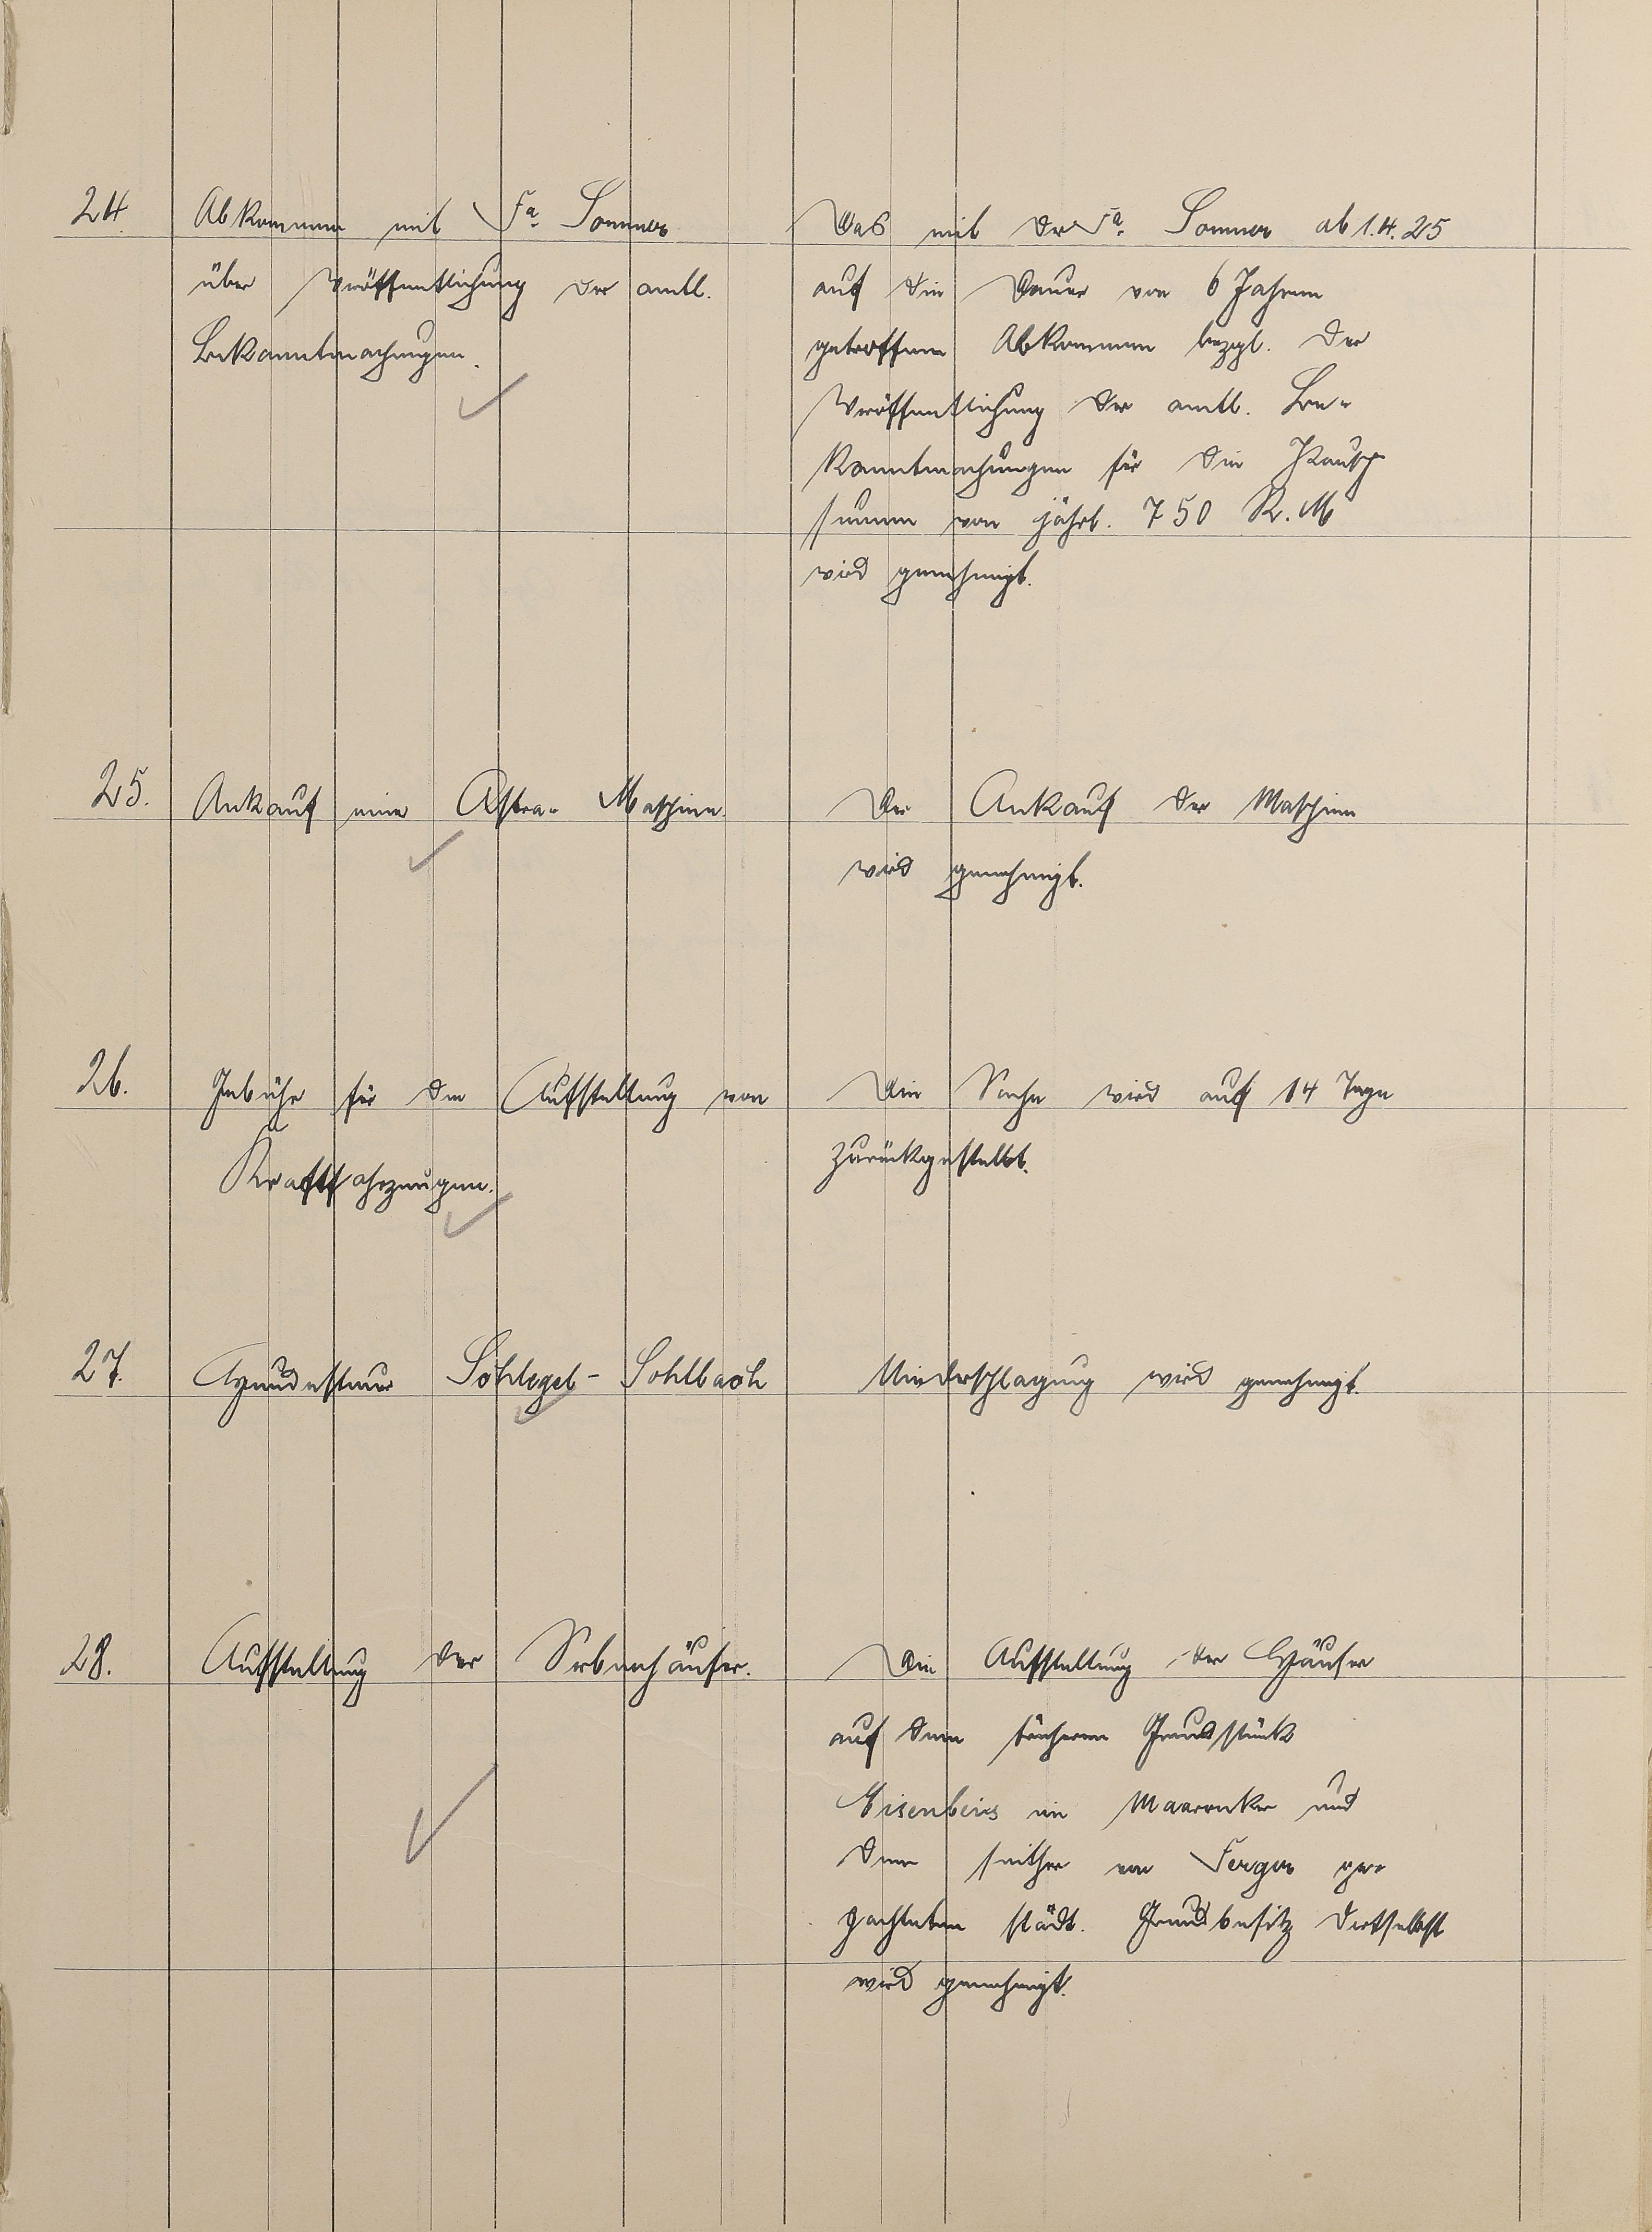 24.
Abkommen mit Fa. Sommer
über Veröffentlichung der amtl.
Bekanntmachungen.
Das mit der Fa. Sommer ab 1.4.25
auf die Dauer von 6 Jahren
getroffene Abkommen bezgl. der
Veröffentlichung der amtl. Be-
kanntmachungen für die Pausch
summe von jährl. 750 R.M
wird genehmigt.
25.
Ankauf einer Astra- Maschine.
Der Ankauf der Maschine
wird genehmigt.
26.
Gebühr für die Aufstellung von
Kraftfahrzeugen.
Die Sache wird auf 14 Tage
zurückgestellt.
27.
Hundesteuer Schlegel - Sohlbach
Niederschlagung wird genehmigt.
28.
Aufstellung der Serbenhäuser.
Die Aufstellung der Häuser
auf dem früheren Grundstück
Eisenbeis im Maaracker und
dem seither von Ferger ge-
pachteten städt. Grundbesitz dortselbst
wird genehmigt.